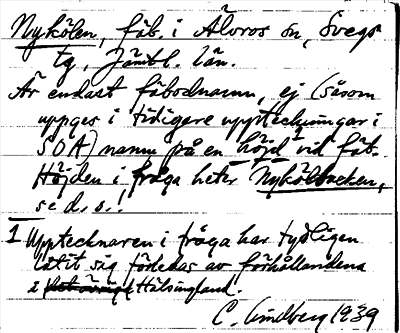 Nykölen, fäb. i Älvros sn, Svegs
tg, Jämtl. län.
Är endast fäbodnamn, ej (såsom
uppges i tidigare uppteckningar i
SOA) namn på en höjd 1 vid fäb.
Höjden i fråga heter Nykölbacken,
se d. o.!
1 Upptecknaren i fråga har tydligen
låtit sig förledas av förhållandena
i Hälsingland.
C. Lindberg 1939